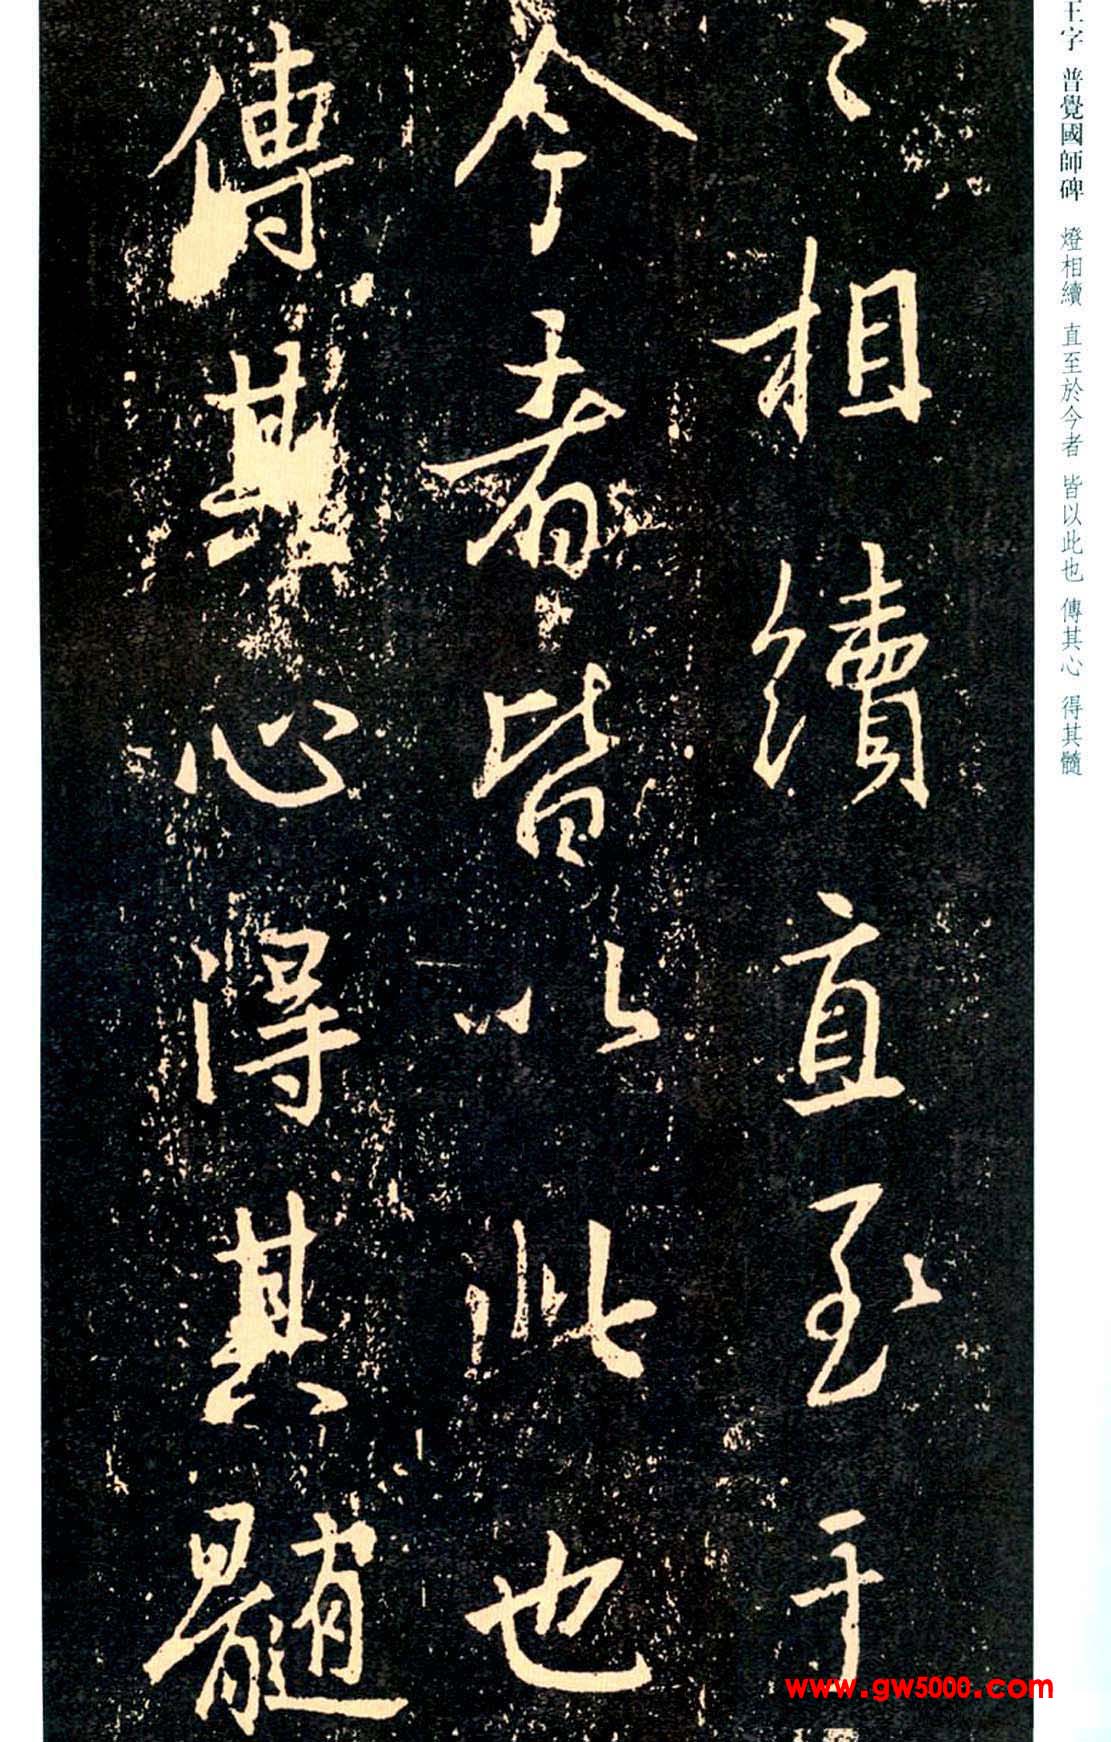 〻相續直至于
今者皆以此也
傳其心得其髓
王字 普覺國師碑 燈相續 直至於今者 皆以此也 傳其心 得其髓
www.gw5000.com